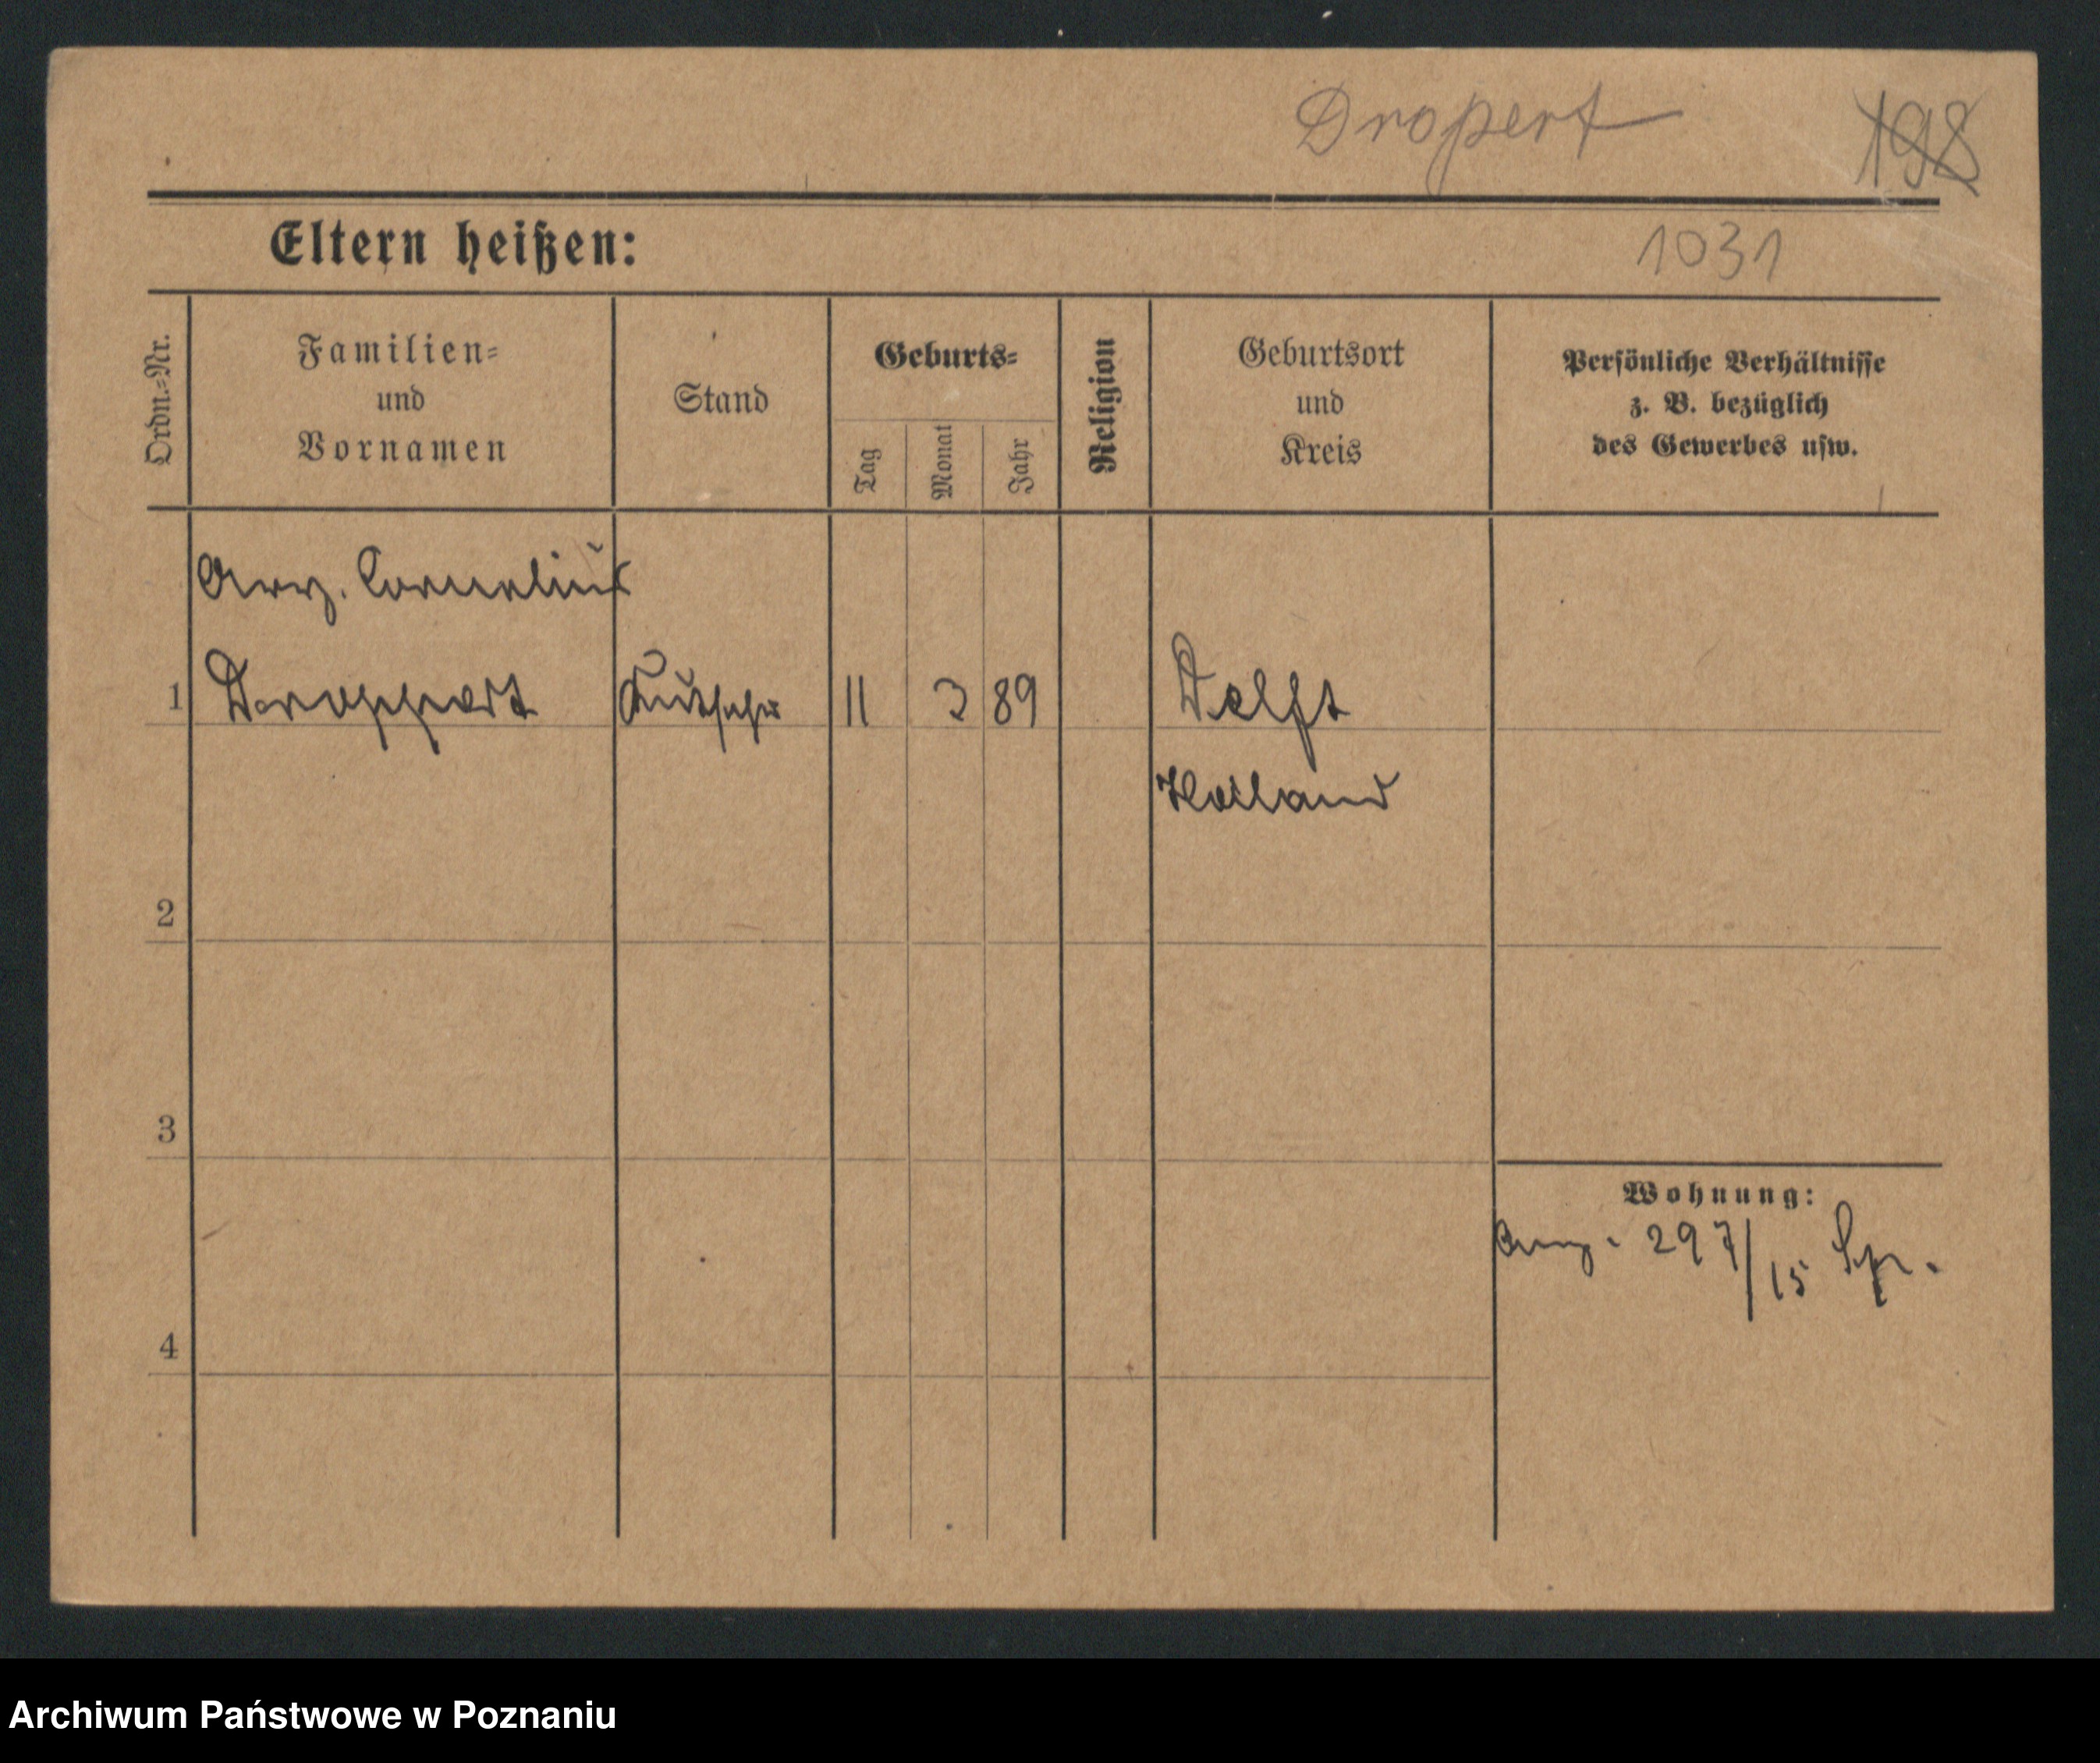 Dropert 198
Eltern heißen: 1031
Ordn.-Nr.
Familien-
und
Vornamen
Stand
Geburts-
Tag
Monat
Jahr
Religion
Geburtsort
und
Kreis
Persönliche Verhältnisse
z. B. bezüglich
des Gewerbes usw.
Cornelius
1 Droppert Kutscher 11 3 89 Delft
Holland
2
3
Wohnung:
297/15
4
Archiwum Państwowe w Poznaniu